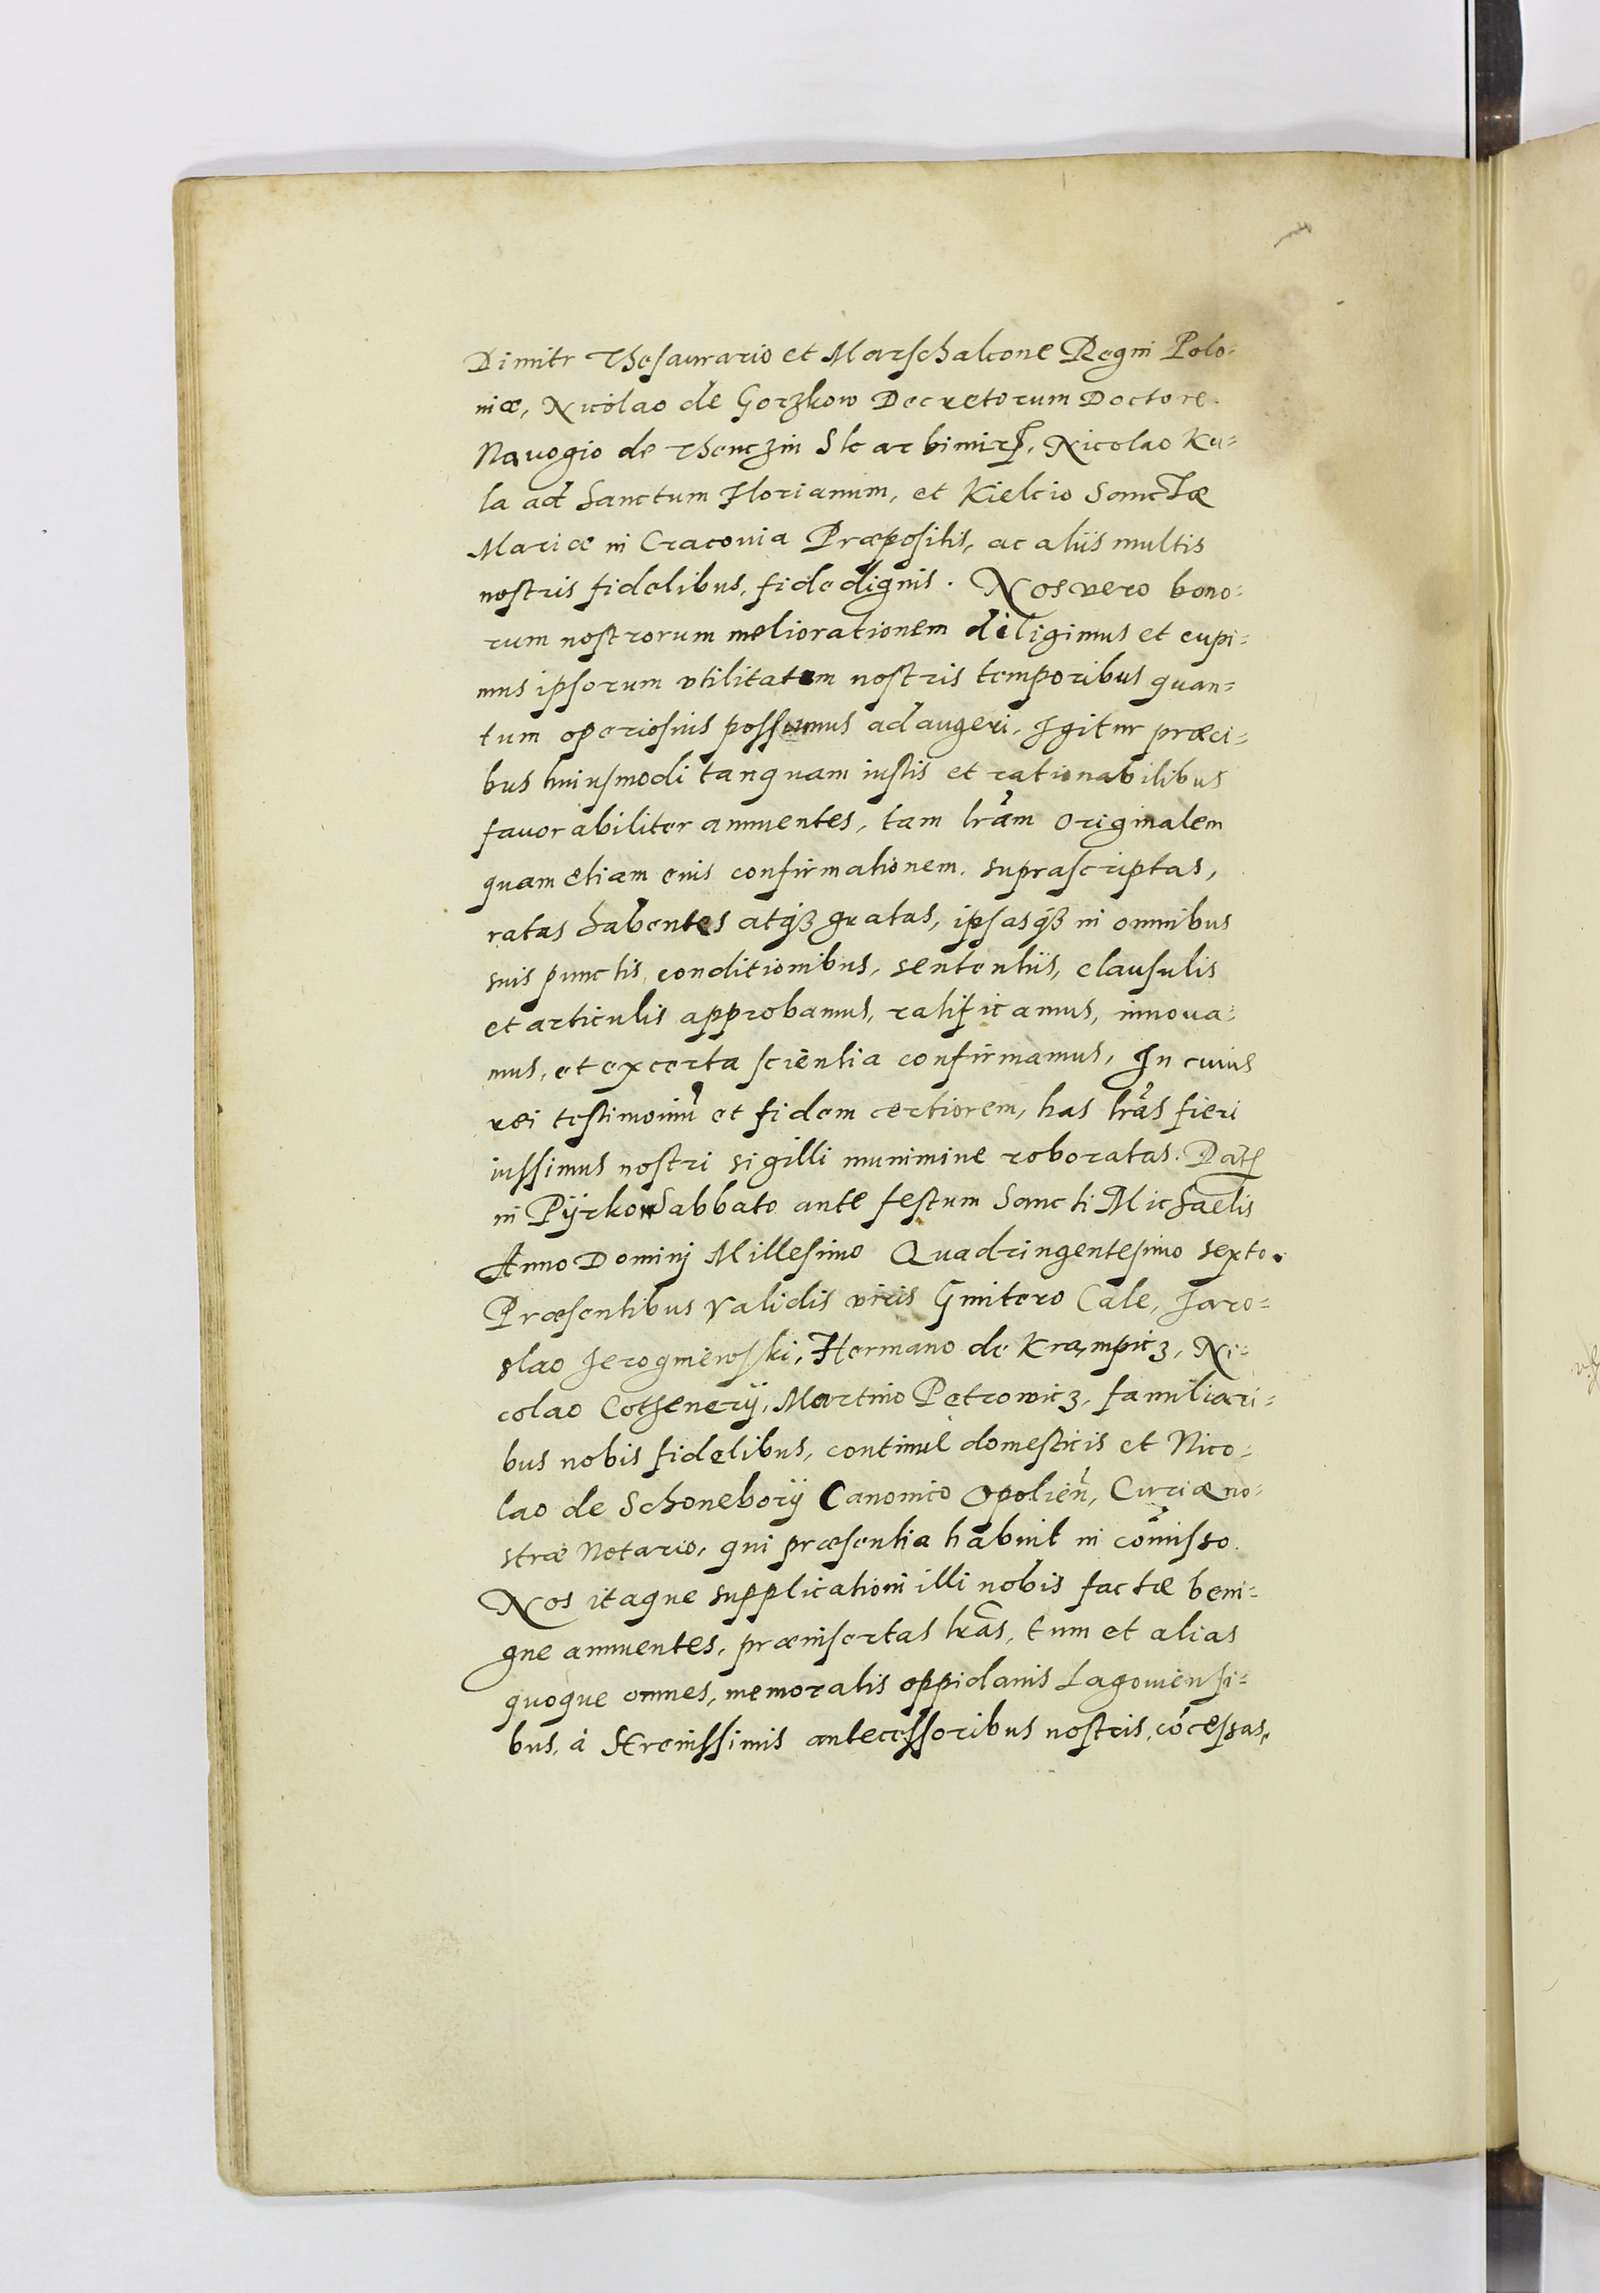 Dimitr Thesaurario et Marschalcone Regni Polo-
niæ, Nicolao de Gorzkow Decretorum Doctore.
Navogio de Thenczin Scarbimirs, Nicolao Ku-
la ad Sanctum Florianum, et Kielcio Sanctæ
Mariæ in Cracovia Præpositis, ac aliis multis
nostris fidelibus, fidedignis. Nos vero bono-
rum nostrorum meliorationem diligimus et cupi-
mus ipsorum vtilitatem nostris temporibus quan-
tum operiosius possumus adaugeri, Igitur præci-
bus huiusmodi tanquam iustis et rationabilibus
favorabiliter annuentes, tam lrām originalem
quam etiam eius confirmationem, suprascriptas,
ratas habentes atqꝫ gratas, ipsasqꝫ in omnibus
suis punctis, conditionibus, sententiis, clausulis
et articulis approbamus, ratificamus, innova-
mus, et ex certa scientia confirmamus, In cuius
rei testimoniū et fidem certiorem, has lrās fieri
iussimus nostri sigilli munimine roboratas. Dat
in Pÿrkow Sabbato ante festum Sancti Michaelis
Anno Dominj Millesimo Quadringentesimo sexto.
Præsentibus validis viris Gmitero Cale, Jaro-
slao Jerogniewski, Hermano de Krampicz, Ni-
colao Cothenerÿ, Martino Petrowicz, familiari-
bus nobis fidelibus, continuè domesticis et Nico-
lao de Schoneborÿ Canonico Opolien̄, Curiæ no-
stræ Notario, qui præsentia habuit in com̄isso.
Nos itaque supplicationi illi nobis factæ beni-
gne annuentes, præinsertas lrās, tum et alias
quoque omnes, memoratis oppidanis Lagoviensi-
bus, à Serenissimis antecessoribus nostris, cōcessas,